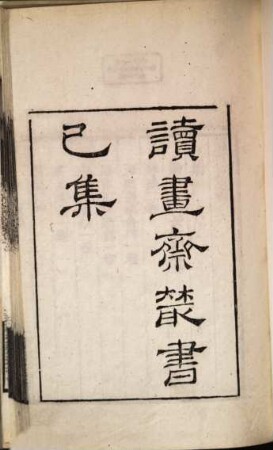 讀畫齋叢書
己集